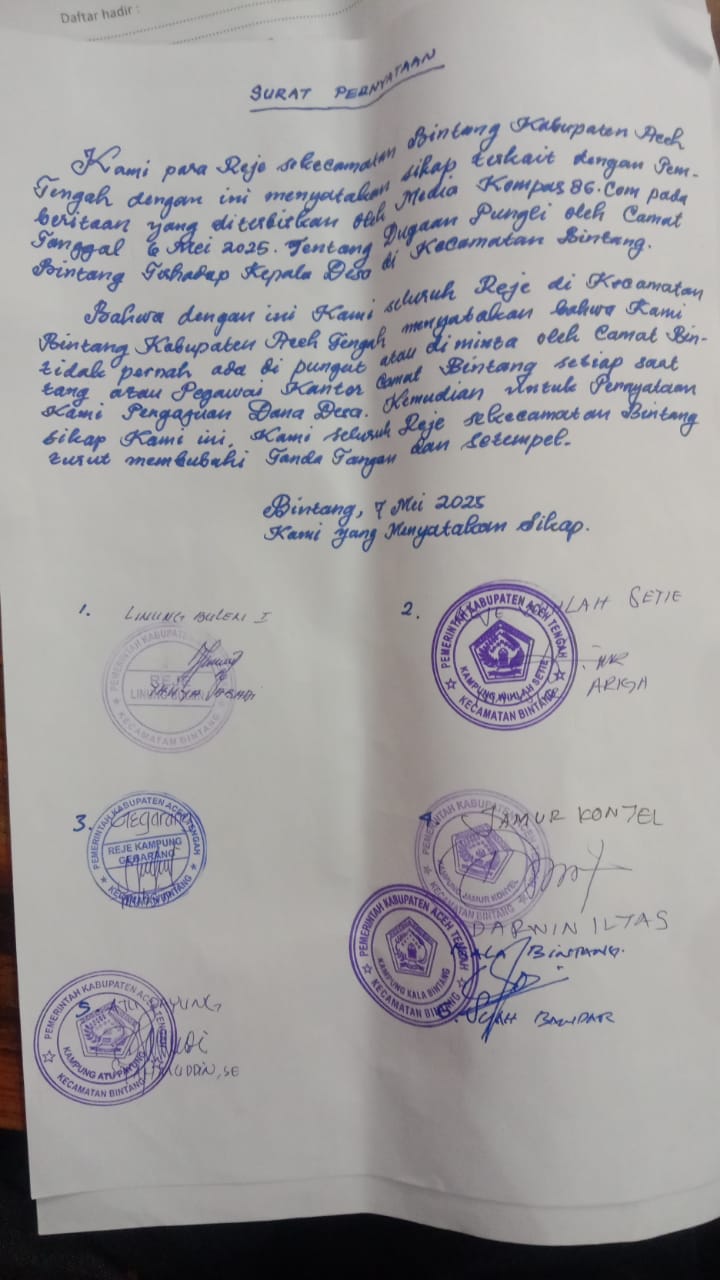 Daftar hadir :
SURAT PERNYATAAN
Kami para Reje sekecamatan Bintang Kabupaten Aceh
Tengah dengan ini menyatakan sikap terkait dengan Pem-
beritaan yang diterbitkan oleh Media Kompas86.Com pada
Tanggal 6 Mei 2025. Tentang Dugaan Pungli oleh Camat
Bintang Terhadap Kepala Desa di Kecamatan Bintang.
Bahwa dengan ini Kami seluruh Reje di Kecamatan
Bintang Kabupaten Aceh Tengah menyatakan bahwa Kami
tidak pernah ada di pungut atau diminta oleh Camat Bin-
tang atau Pegawai Kantor Camat Bintang setiap saat
Kami Pengajuan Dana Desa. Kemudian untuk Pernyataan
Sikap Kami ini, Kami seluruh Reje sekecamatan Bintang
turut membubuhi Tanda Tangan dan Setempel.
Bintang, 7 Mei 2025
Kami yang Menyatakan Sikap.
1. LINUNG BULEN I
PEMERINTAH KABUPATEN
REJE
KECAMATAN BINTANG
2. SETIE
PEMERINTAH KABUPATEN ACEH TENGAH
KAMPUNG WIHLAH SETIE
KECAMATAN BINTANG
ARIGA
3. Gegarang
PEMERINTAH KABUPATEN ACEH TENGAH
REJE KAMPUNG
GEGARANG
KECAMATAN BINTANG
4. JAMUR KONYEL
PEMERINTAH KABUPATEN
KAMPUNG JAMUR KONYEL
KECAMATAN BINTANG
DARWIN ILYAS
KALA BINTANG.
PEMERINTAH KABUPATEN ACEH TENGAH
KAMPUNG KALA BINTANG
KECAMATAN BINTANG
SYAH BANDAR
5. ATU PAYUNG
PEMERINTAH KABUPATEN ACEH TENGAH
KAMPUNG ATU PAYUNG
KECAMATAN BINTANG
, SE